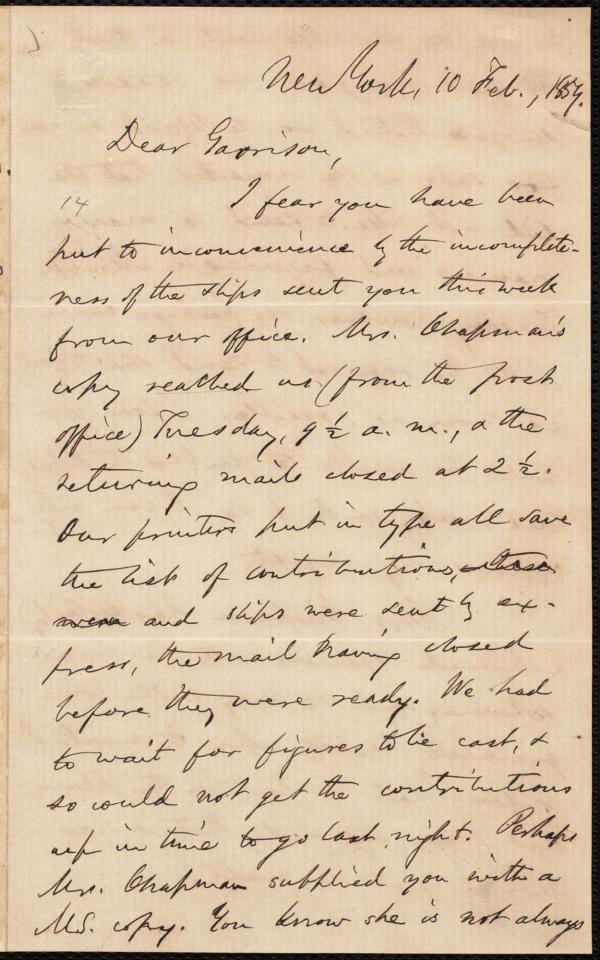 New York, 10 Feb., 1859.
Dear Garrison,
14
I fear you have been
put to inconvenience by the incomplete-
ness of the slips sent you this week
from our office. Mrs. Chapman's
copy reached us (from the post
office) Tuesday, 9 ½ a. m., & the
returning mails closed at 2 ½.
Our printers put in type all save
the list of contributions, these
were and slips were sent by ex-
press, the mail having closed
before they were ready. We had
to wait for figures to be cast, &
so could not get the contributions
up in time to go last night. Perhaps
Mrs. Chapman supplied you with a
M.S. copy. You know she is not always